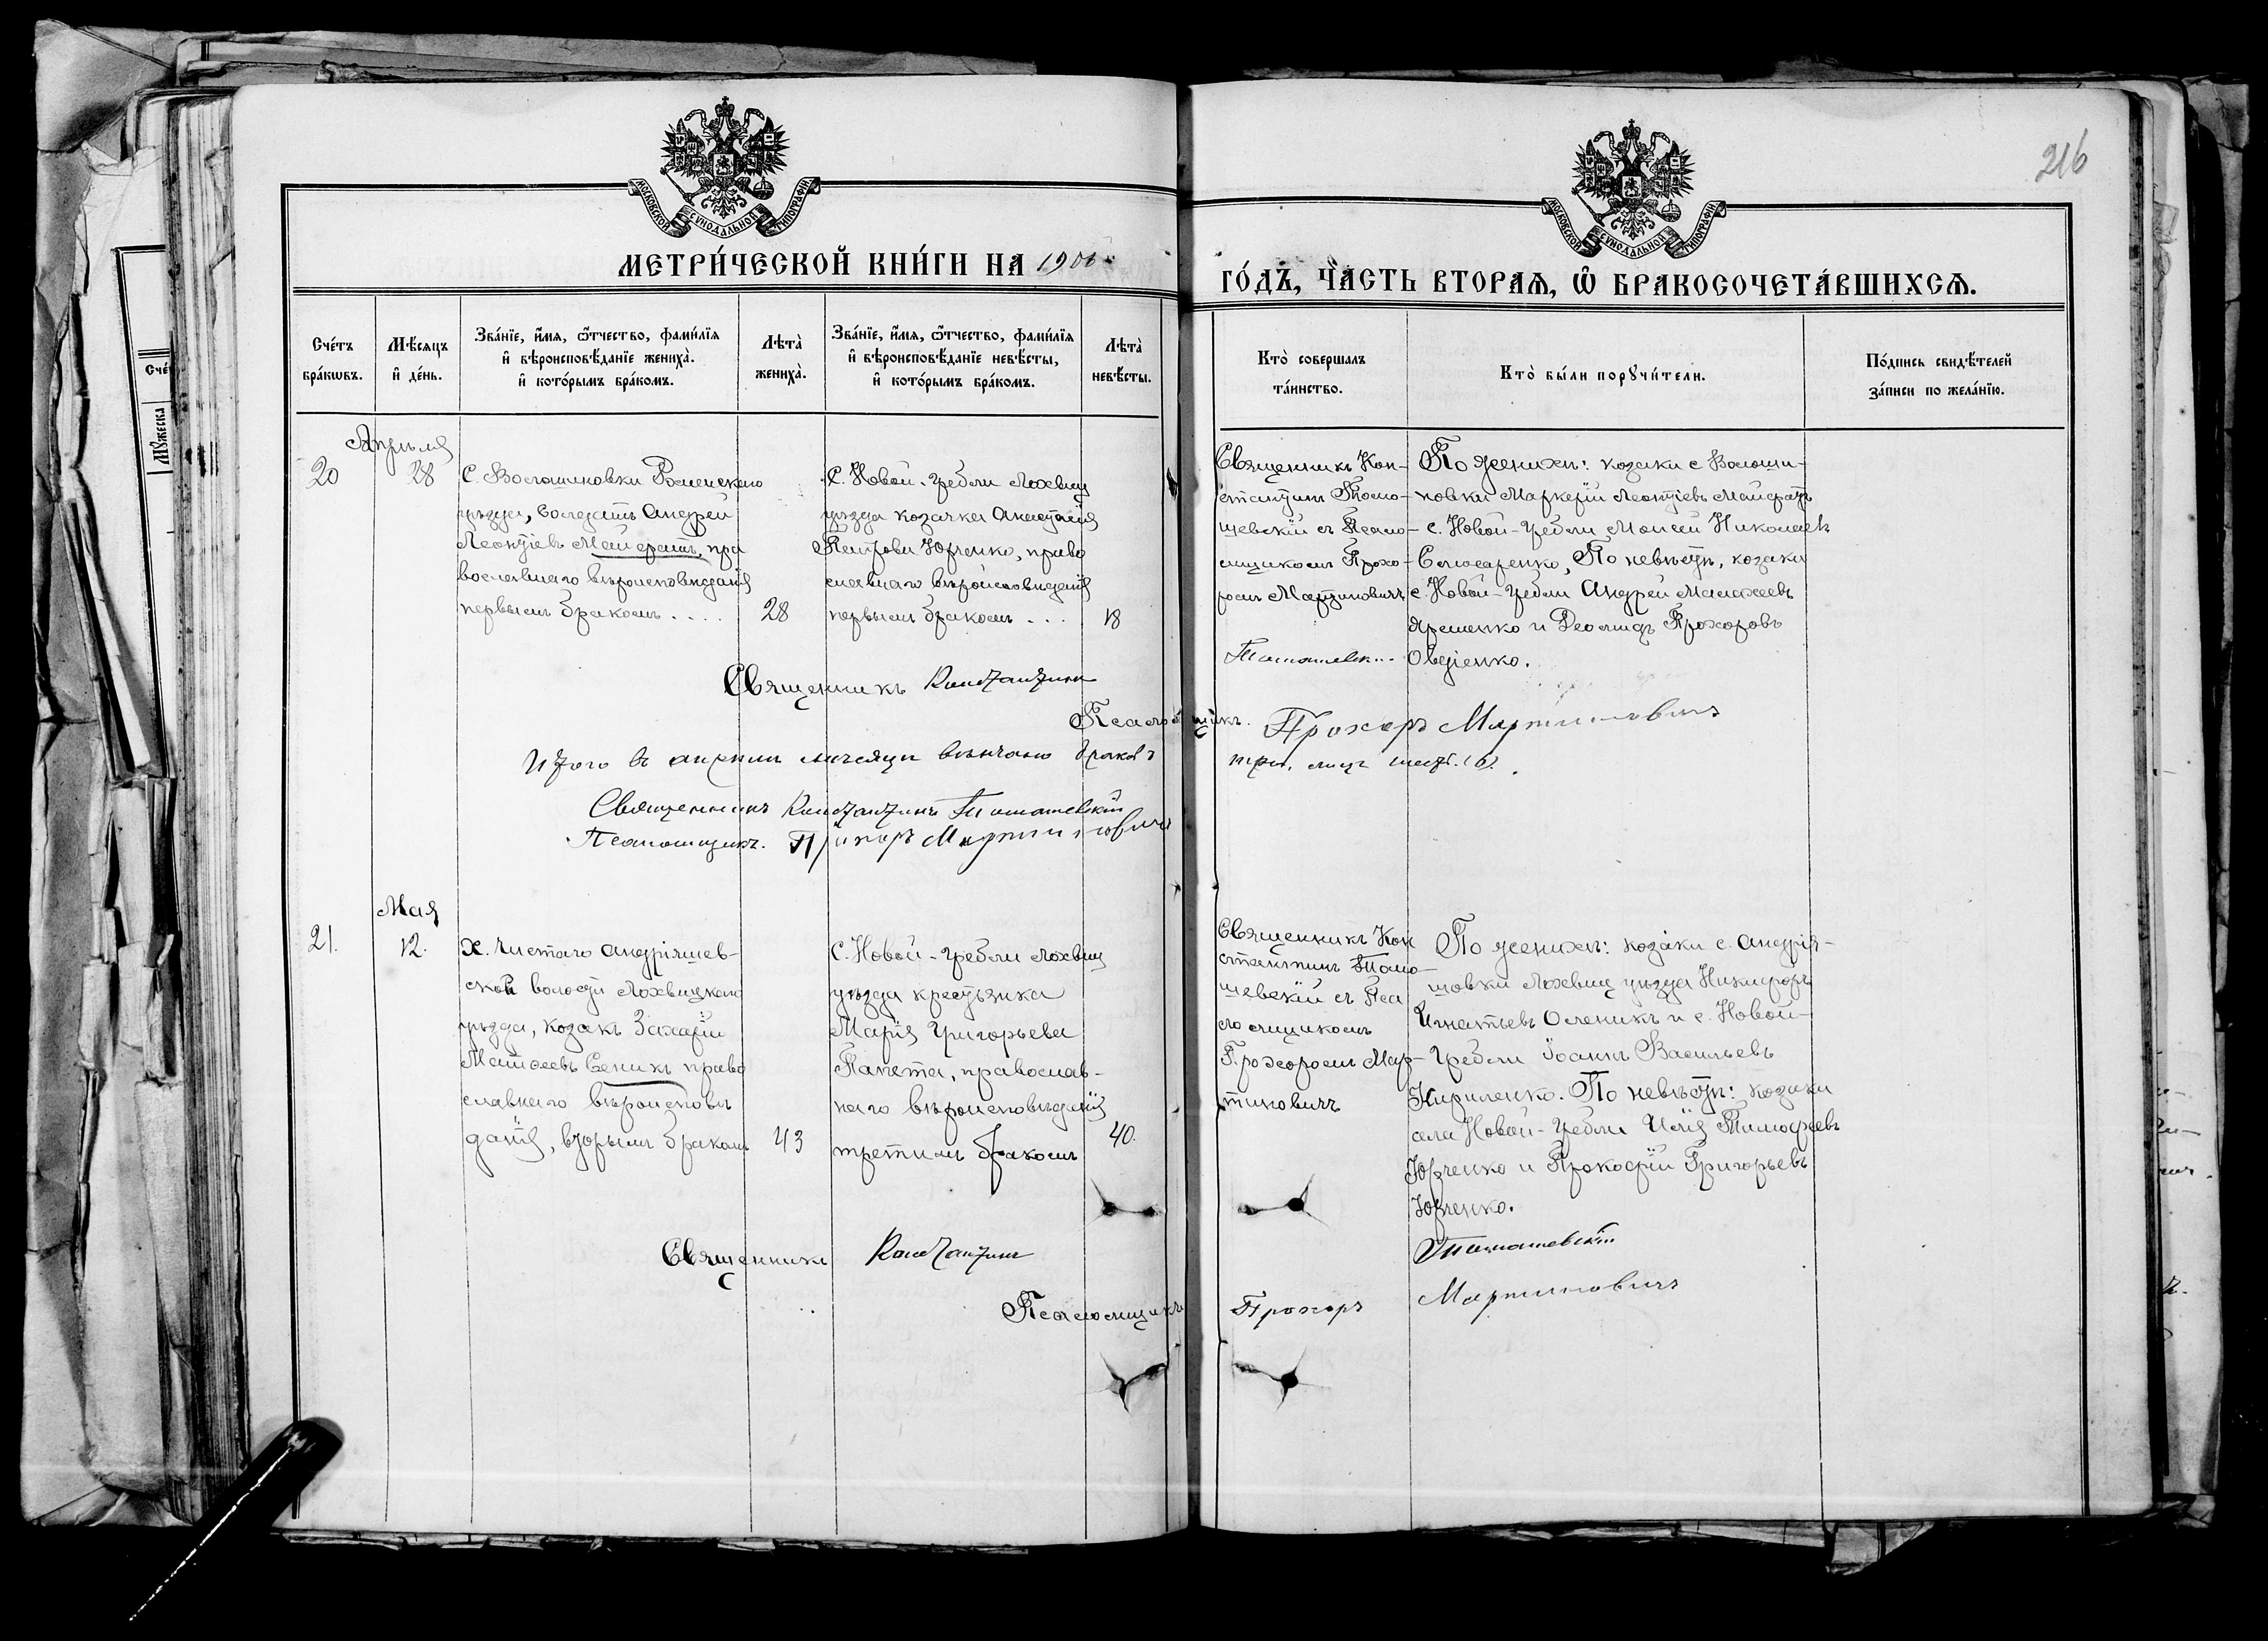 216
МОСКОВСКОЙ СѴНОДАЛЬНОЙ ТИПОГРАФІИ.
МОСКОВСКОЙ СѴНОДАЛЬНОЙ ТИПОГРАФІИ.
МЕТРИ́ЧЕСКОЙ КНИ́ГИ НА 1900
ГО́ДЪ, ЧА́СТЬ ВТОРАѦ, Ѽ БРАКОСОЧЕТА́ВШИХСѦ.
Сче́тъ
бра́кωвъ.
Мѣ́сяцъ
и҆ де́нь.
Зва́нїе, и҆́мя, ѻ҆́тчество, фами́лїя
и҆ вѣроисповѣ́данїе жениха̀.
и҆ кото́рымъ бра́комъ.
Лѣта̀
жениха̀.
Зва́нїе, и҆́мя, ѻ҆́тчество, фами́лїя
и҆ вѣроисповѣ́данїе невѣ́сты,
и҆ кото́рымъ бра́комъ.
Лѣта̀
невѣ́сты.
Кто̀ соверша́лъ
та́инство.
Кто̀ бы́ли порꙋчи́тели.
По́дпись свидѣ́телей
за́писи по жела́нїю.
Апрѣля
20
28
С. Волошиновки Роменскаго
уѣзда, солдатъ Андрей
Леонтіевъ Майфатъ, пра
вославнаго вѣроисповѣданія
первымъ бракомъ . . . .
28
С. Новой-Гребли Лохвиц
уѣзда козачка Анастасія
Петрова Юрченко, право
славнаго вѣроисповѣданія
первымъ бракомъ . . .
18
Священникъ Кон-
стантинъ Тома-
шевскій съ Псало-
мщикомъ Прохо-
ромъ Мартиновичъ
По женихѣ: козаки с Волоши-
новки Маркелій Леонтіевъ Майфатъ
с. Новой-Гребли Моисей Николаевъ
Слюсаренко, По невѣстѣ, козаки
с. Новой-Гребли Андрей Малахеевъ
Яременко и Леонидъ Прохоровъ
Овдіенко.
Священникъ Константинъ Томашевскій
Псаломщикъ. Прохоръ Мартиновичъ
Итого въ апрѣлѣ мѣсяцѣ вѣнчано браковъ три, лицъ шесть (6).
Священникъ Константинъ Томашевскій
Псаломщикъ. Прохоръ Мартиновичъ
Мая
21.
12.
Х. Чистаго Андріяшев-
ской волости Лохвицкаго
уѣзда, козакъ Захарій
Матѳеевъ Сеникъ право
славнаго вѣроисповѣ
данія, вторымъ бракомъ
43
С. Новой-Гребли Лохвиц
уѣзда крестьянка
Марія Григорьева
Папета, православ-
наго вѣроисповѣданія
третимъ бракомъ
40.
Священникъ Кон
стантинъ Тома-
шевскій съ Пса
ломщикомъ
Прохоромъ Мар-
тиновичъ
По женихѣ: козаки с. Андрія-
шовки Лохвиц уѣзда Никифоръ
Игнатьевъ Оленикъ и с. Новой-
Гребли Іоаннъ Васильевъ
Кириленко. По невѣстѣ: козаки
села Новой-Гребли Илія Тимофеевъ
Юрченко и Прокофій Григорьевъ
Юрченко.
Священникъ Константинъ Томашевскій
Псаломщикъ Прохоръ Мартиновичъ